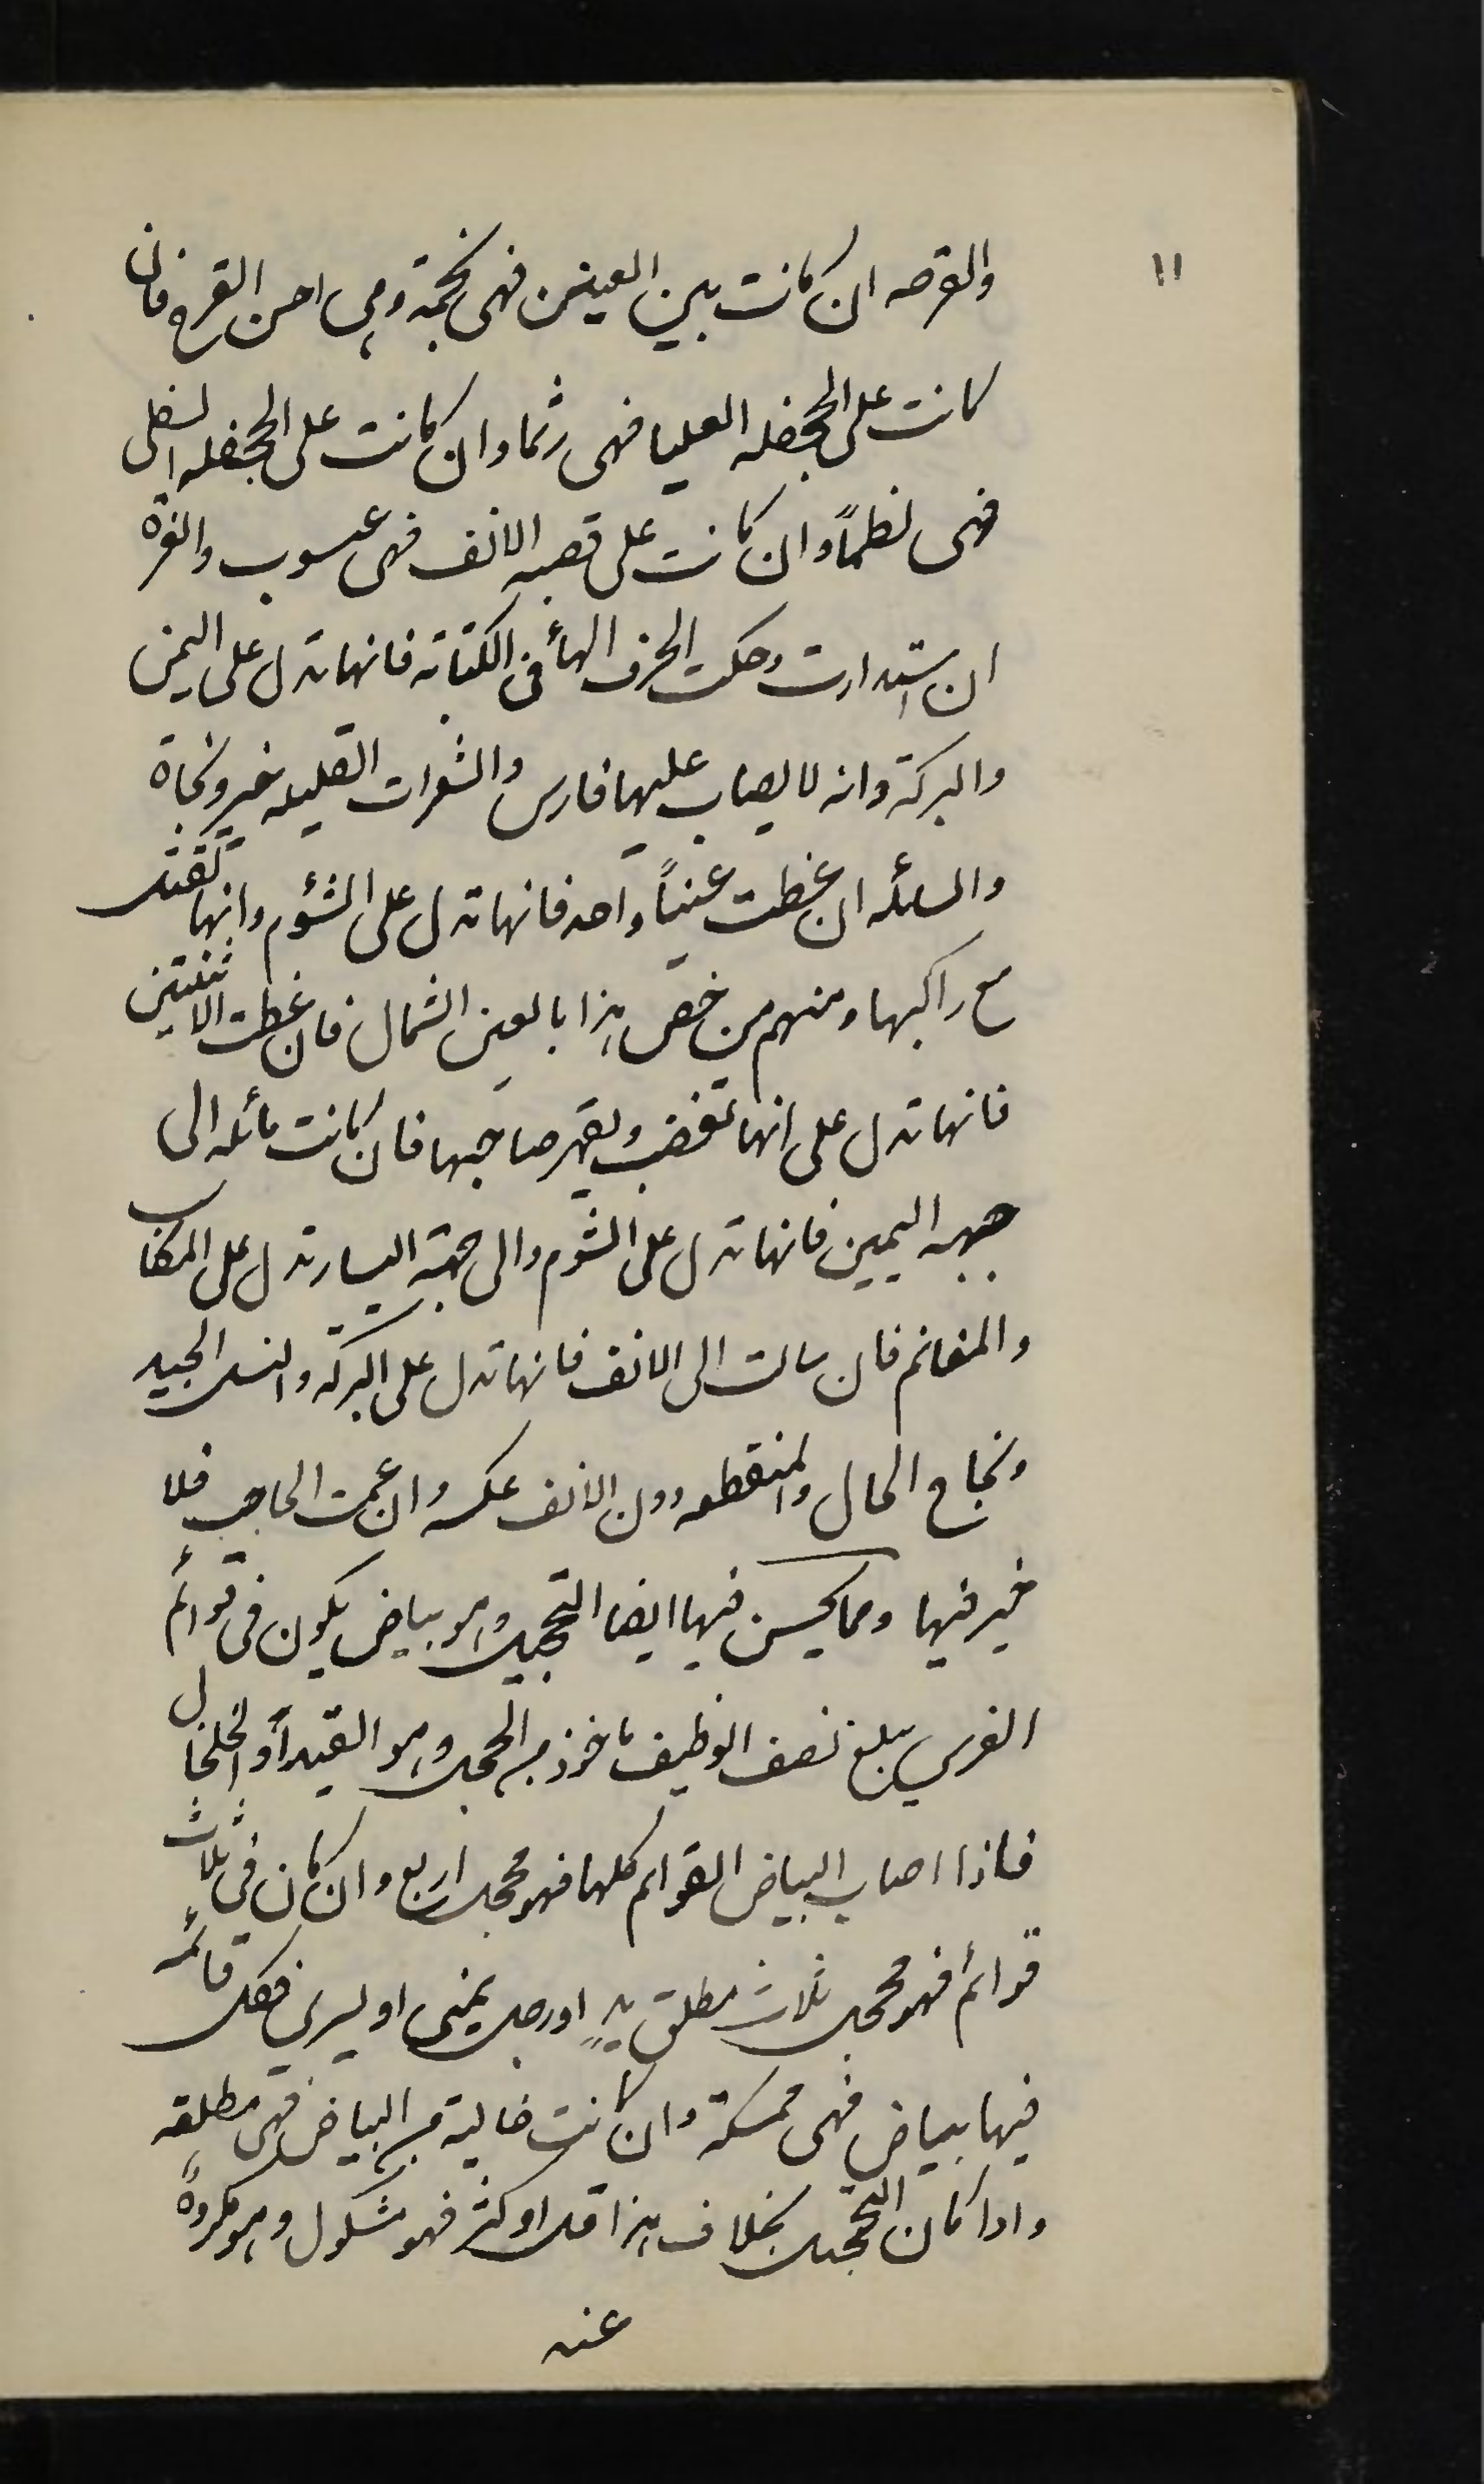 ١١
والقرحه ان كانت بين العينين فهى نجمة وهى احسن القرح فان
كانت على الجحفله العليا فهى رثما وان كانت على الجحفله السفلى
فهى لظماً وان كانت على قصبه الانف فهى عسوب والغرة
ان استدارت وحكت الحرف الهأ فى الكتابة فانها تدل على اليمن
والبركة وانه لا يصاب عليها فارس والشعرات القليله خير ونجاة
والسائله ان غطت عيناً واحده فانها تدل على الشؤم وانها تقتل
مع راكبها ومنهم من خص هذا بالعين الشمال فان غطت الاثنتين
فانها تدل على انها تغضب ويقهر صاحبها فان كانت مائله الى
جهه اليمين فانها تدل على الشوم والى جهة اليسار تدل على المكاسب
والمغانم فان سالت الى الانف فانها تدل على البركه والنسل الجيد
ونجاح الحال والمنقطعه دون الانف عكسه وان عمت الحاجب فلا
خير فيها ومما يحسن فيها ايضا التحجيل وهو بياض يكون فى قوائم
الفرس يبلغ نصف الوظيف ماخوذ من الحجل وهو القيد أو الخلخال
فاذا اصاب البياض القوايم كلها فهو محجل اربع وان كان فى ثلاث
قوائم فهو محجل ثلاث مطلق يدٍ او رجل يمنى او يسرى فكل قائمه
فيها بياض فهى ممسكة وان كانت خالية من البياض فهى مطلقه
واذا كان التحجيل بخلاف هذا قل او كثر فهو مشكول وهو مكروهً
عنه